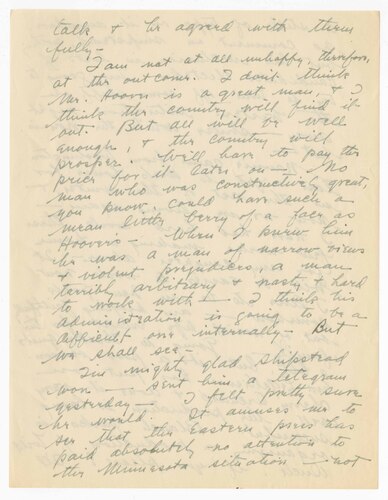 talk & he agreed with them
fully -
I am not at all unhappy, therefore,
at the outcome. I don't think
Mr. Hoover is a great man, & I
think the country will find it
out. But all will be well
enough, & the country will
prosper. Will have to pay the
price for it later on — No
man who was constructively great,
you know, could have such a
mean little berry of a face as
Hoover's — When I knew him
he was a man of narrow views
& violent prejudices, a man
terribly arbitrary & nasty & hard
to work with — I think his
administration is going to be a
difficult one internally - But
we shall see -
I'm mighty glad Shipstead
won — sent him a telegram
yesterday — I felt pretty sure
he would. It amuses me to
see that the Eastern press has
paid absolutely no attention to
the Minnesota situation — not